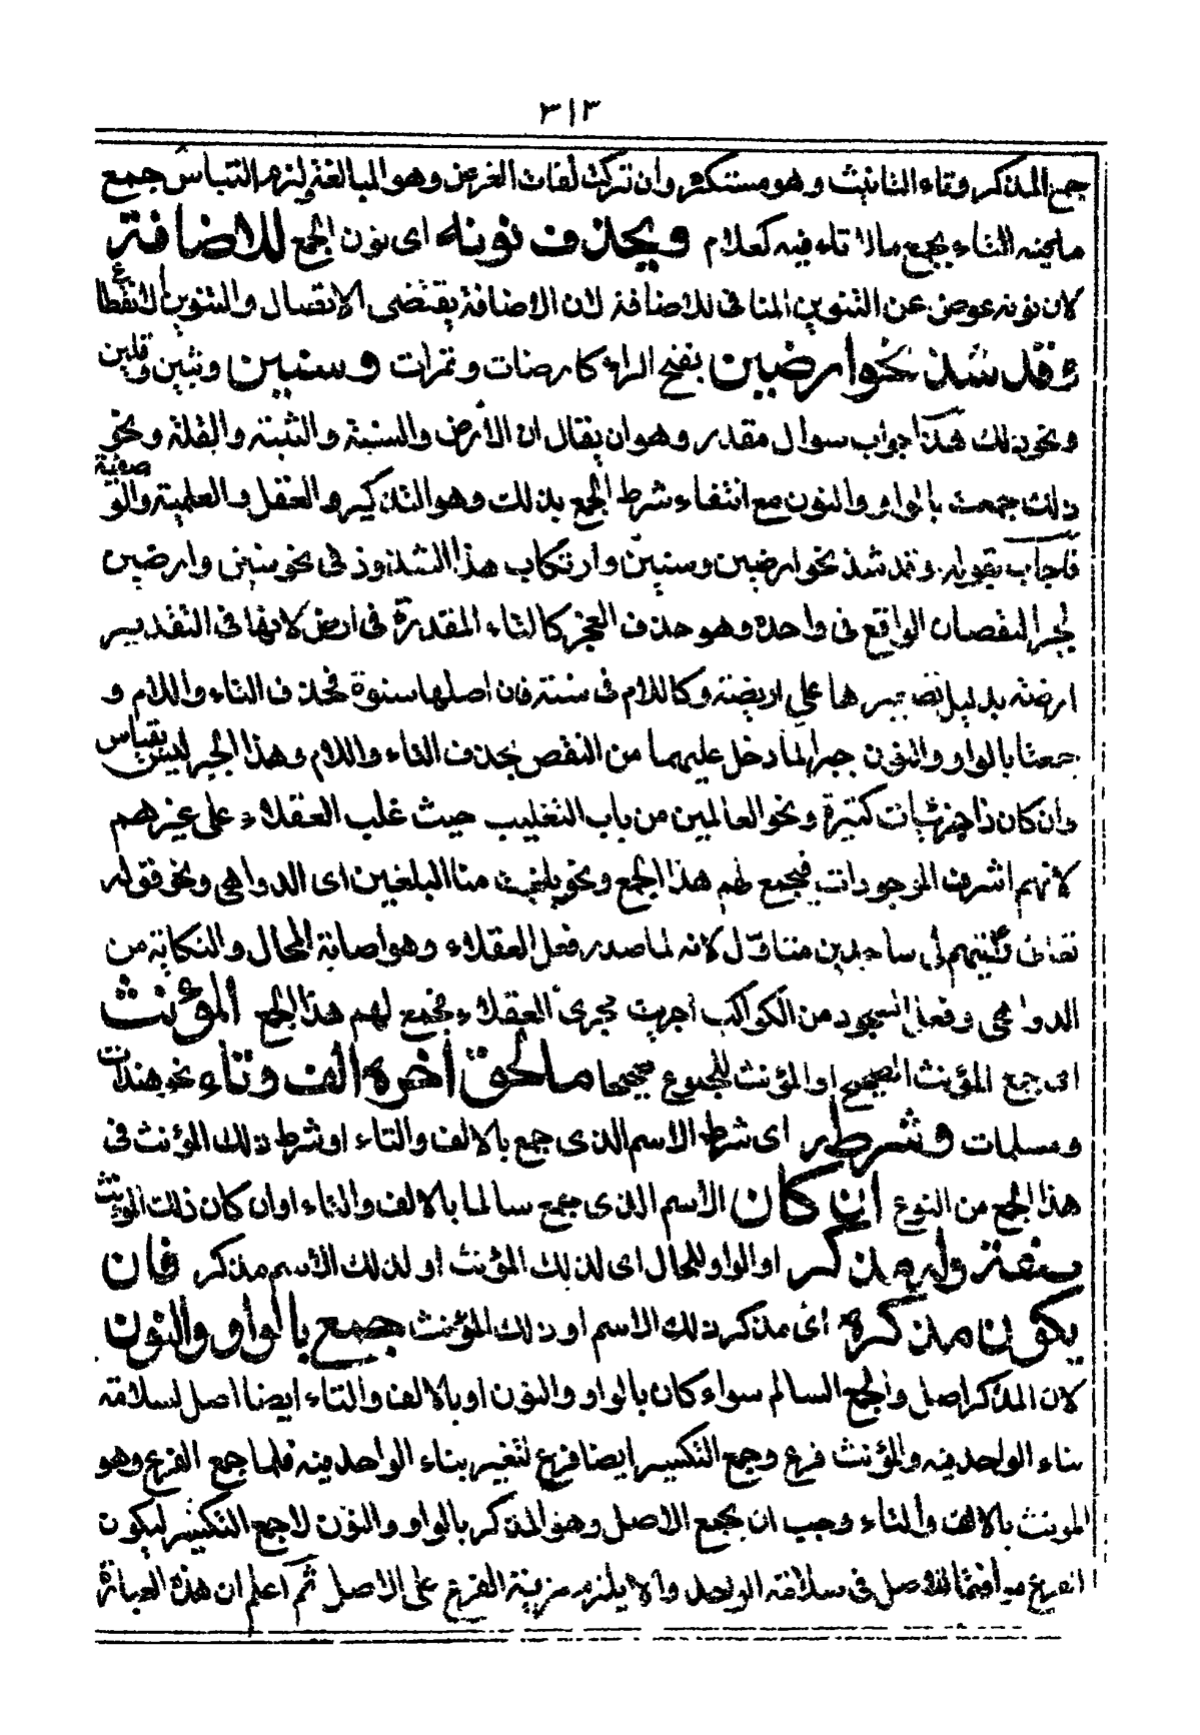 ٣١٣
جمع المذكر وتاء التانيث وهو مستنكره وان تركت لفات الغرض وهو المبالغة ولزم التباس جمع
ما فيه التاء بجمع ما لا تاء فيه كعلام ويحذف نونه اى نون الجمع للاضافة
لان نونه عوض عن التنوين المنافى للاضافة لان الاضافة يقتضى الاتصال والتنوين الانقطاع
وقد شذ نحو ارضين بفتح الراء كارضات وتمرات وسنين وثبين وقلين
ونحو ذلك هذا جواب سوال مقدر وهو ان يقال ان الارض والسنة والثبة والقلة ونحو
ذلك جمعت بالواو والنون مع انتفاء شرط الجمع بذلك وهو التذكير والعقل والعلمية والوصفية
فاجاب بقوله وقد شذ نحو ارضين وسنين وارتكاب هذا الشذوذ فى نحو سنين وارضين
لجبر النقصان الواقع فى واحده وهو حذف العجز كالتاء المقدرة فى ارض لانها فى التقدير
ارضة بدليل تصغيرها على اريضة وكاللام فى سنة فان اصلها سنوة فحذف التاء واللام و
جمعتا بالواو والنون جبرا لما دخل عليهما من النقص بحذف التاء واللام وهذا الجبر ليس بقياس
وان كان ذا جزئيات كثيرة ونحو العالمين من باب التغليب حيث غلب العقلاء على غيرهم
لانهم اشرف الموجودات فيجمع لهم هذا الجمع ونحو بلغت منا البلغين اى الدواهى ونحو قوله
تعالى رأيتهم لى ساجدين متاول لانه لما صدر فعل العقلاء وهو اصابة المحال والنكاية من
الدواهى وفعل السجود من الكواكب اجريت مجرى العقلاء فجمع لهم هذا الجمع المؤنث
اى جمع المؤنث الصحيح او المؤنث المجموع صحيحا ما لحق آخره الف وتاء نحو هندات
ومسلمات وشرطه اى شرط الاسم الذى جمع بالالف والتاء او شرط ذلك المؤنث فى
هذا الجمع من النوع ان كان الاسم الذى جمع سالما بالالف والتاء او ان كان ذلك المؤنث
صفة وله مذكر او الواو للحال اى لذلك المؤنث او لذلك الاسم مذكر فان
يكون مذكره اى مذكر ذلك الاسم او ذلك المؤنث جمع بالواو والنون
لان المذكر اصل والجمع السالم سواء كان بالواو والنون او بالالف والتاء ايضا اصل لسلامة
بناء الواحد فيه والمؤنث فرع وجمع التكسير ايضا فرع لتغير بناء الواحد فيه فلما جمع الفرع وهو
المونث بالالف والتاء وجب ان يجمع الاصل وهو المذكر بالواو والنون لا جمع التكسير ليكون
الفرع موافقا للاصل فى سلامة الواحد والا يلزم مزية الفرع على الاصل ثم اعلم ان هذه العبارة